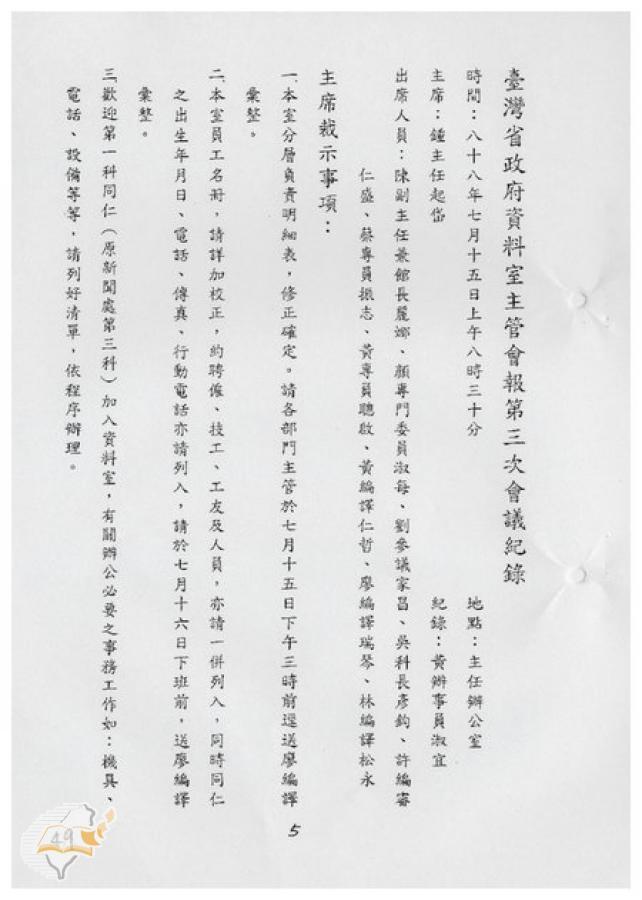 臺灣省政府資料室主管會報第三次會議紀錄
時間：八十八年七月十五日上午八時三十分　地點：主任辦公室
主席：鍾主任起岱　紀錄：黃辦事員淑宜
出席人員：陳副主任兼館長麗娜、顏專門委員淑每、劉參議家昌、吳科長彥鈞、許編審
仁盛、蔡專員振志、黃專員聰啟、黃編譯仁哲、廖編譯瑞琴、林編譯松永
主席裁示事項：
一、本室分層負責明細表，修正確定。請各部門主管於七月十五日下午三時前逕送廖編譯
彙整。
二、本室員工名冊，請詳加校正，約聘僱、技工、工友及人員，亦請一併列入，同時同仁
之出生年月日、電話、傳真、行動電話亦請列入，請於七月十六日下班前，送廖編譯
彙整。
三、歡迎第一科同仁（原新聞處第三科）加入資料室，有關辦公必要之事務工作如：機具、
電話、設備等等，請列好清單，依程序辦理。
5
49